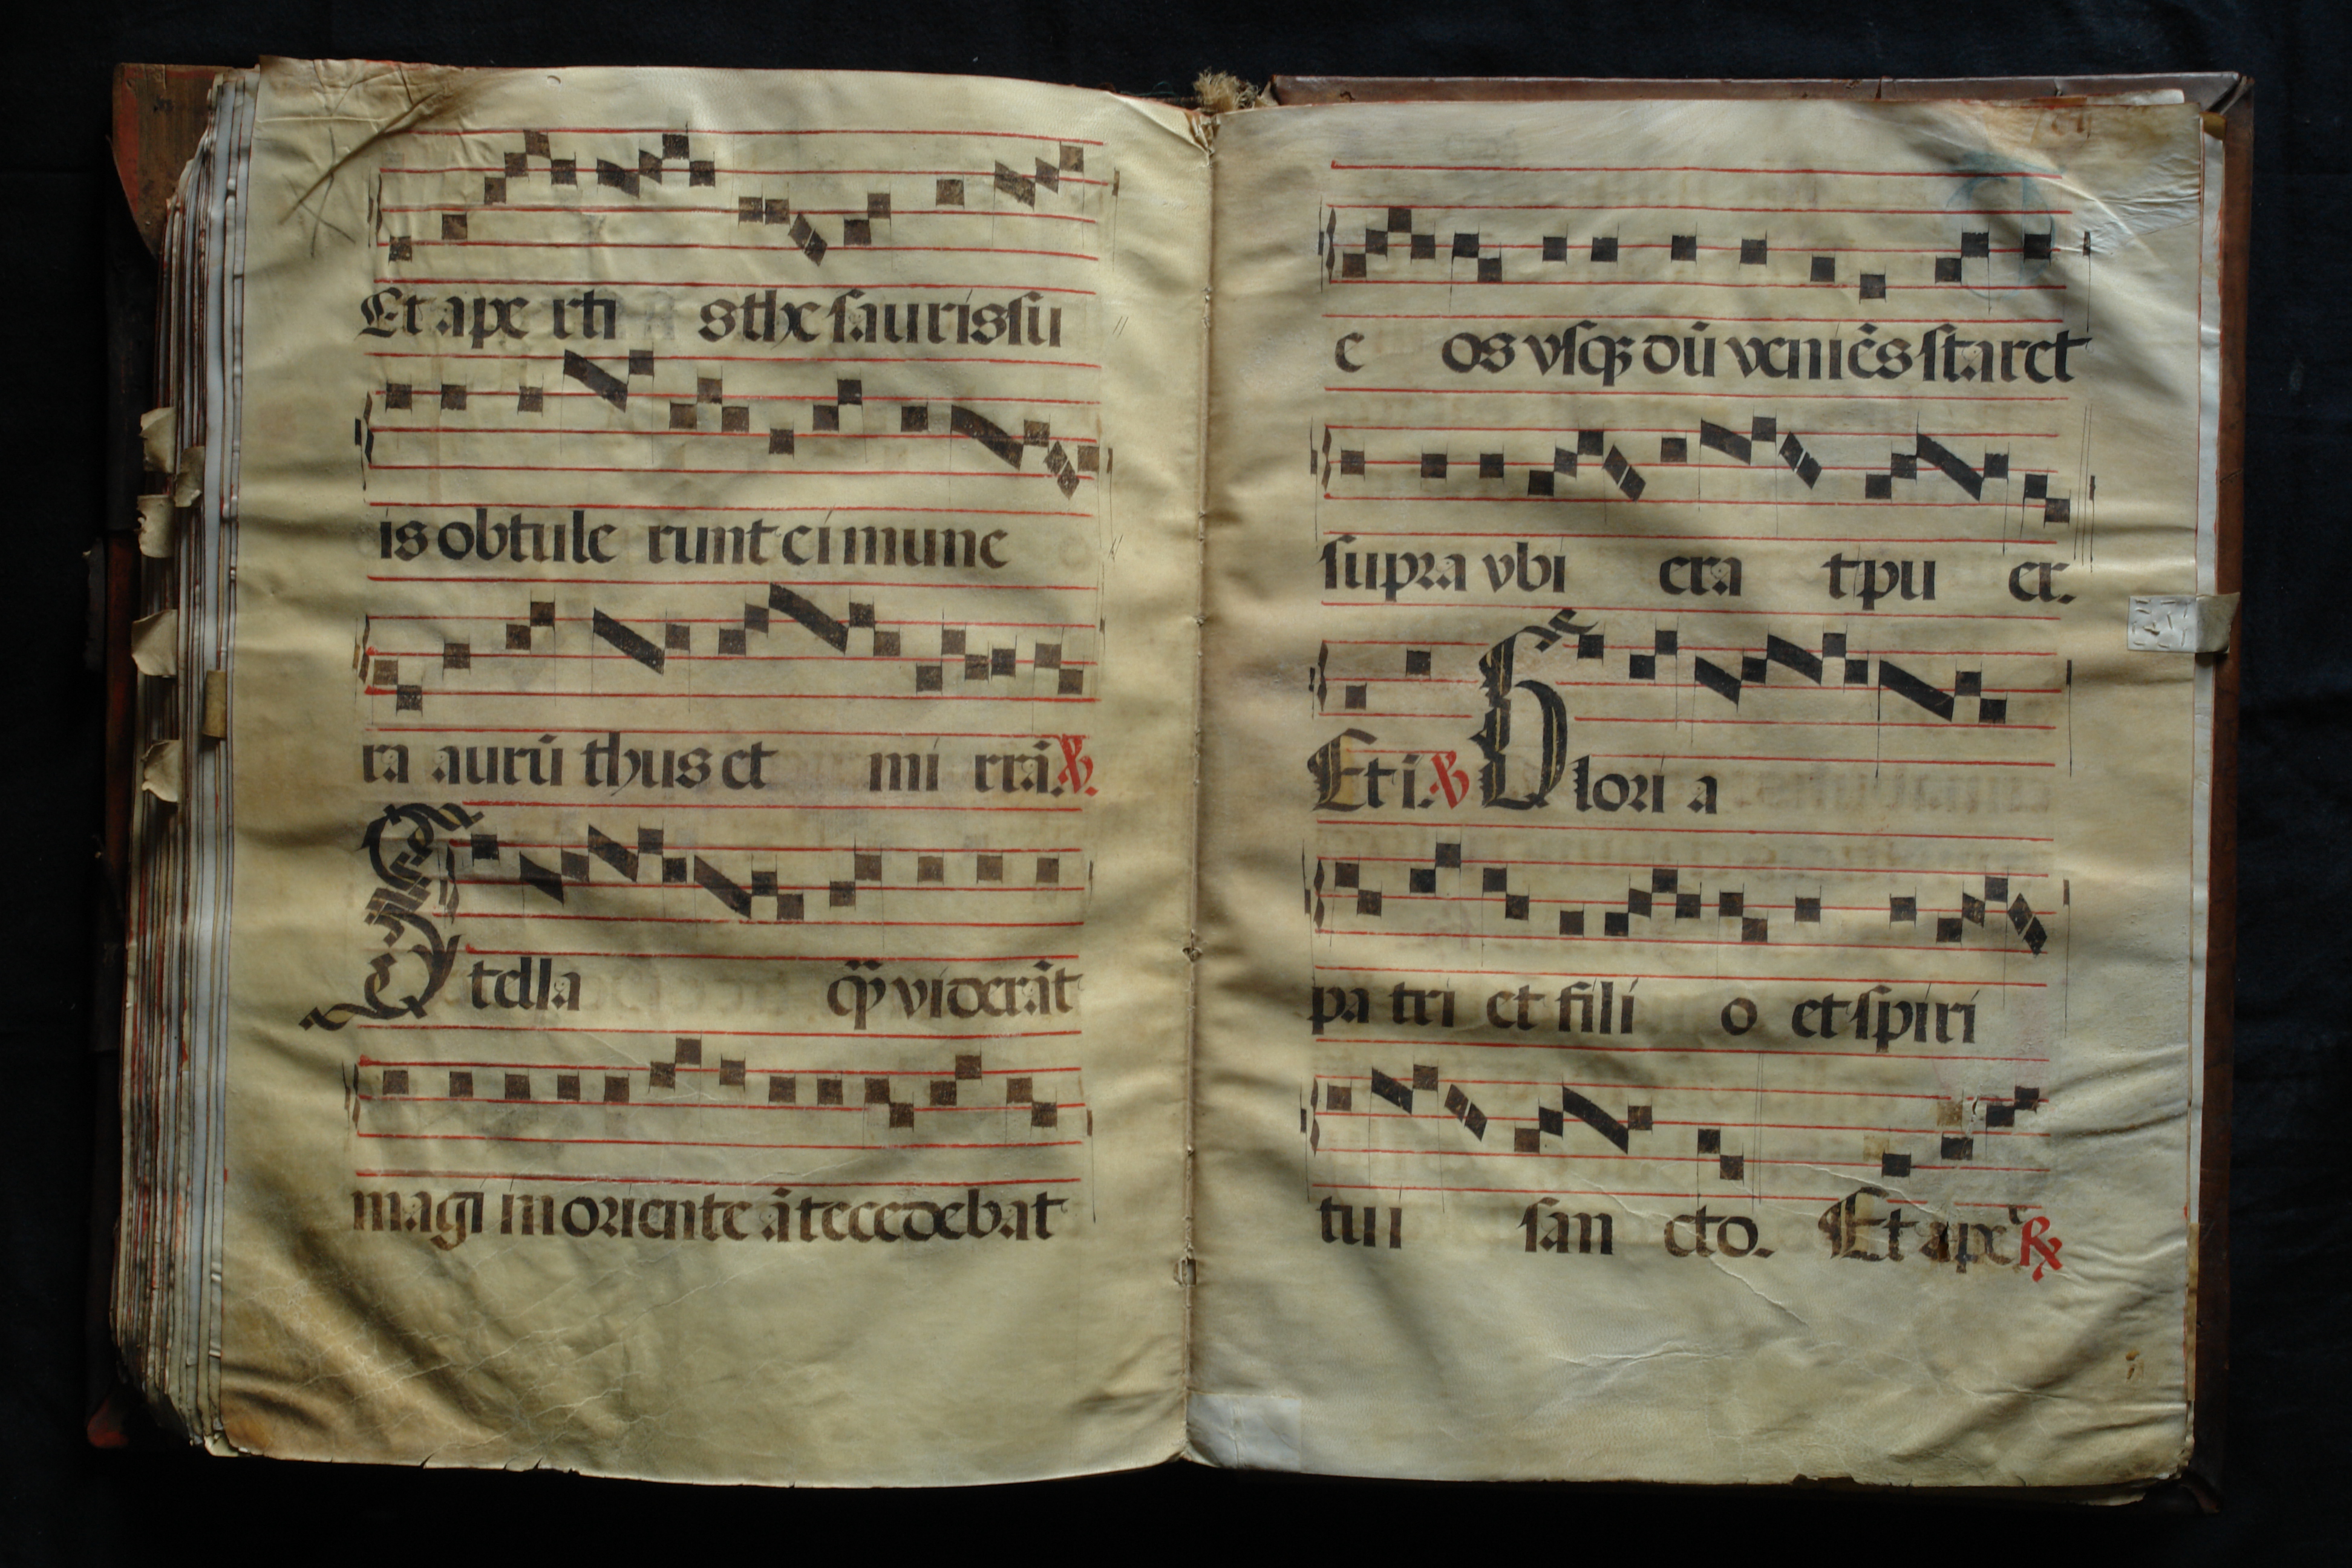 Et ape rti stheſauris ſu
is obtule runt ei mune
ra aurū thus et mi rrā. ℣.
Stella q̄ꝫ viderāt
magi in oriente ātecedebat
e os vſqꝫ dū veniēs ſtaret
ſupra vbi era t pu er.
Et i. ℣ Glori a
pa tri et fili o et ſpiri
tui ſan cto. Et ape ℟